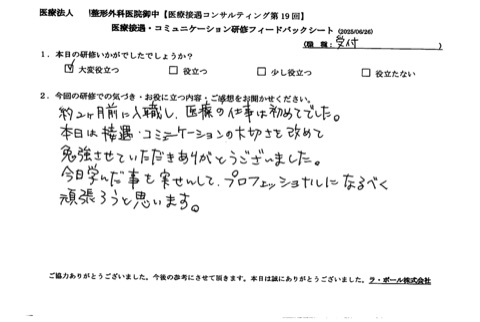 医療法人 整形外科医院御中【医療接遇コンサルティング第19回】
医療接遇・コミュニケーション研修フィードバックシート (2025/06/26)
(職種: 受付 )
1．本日の研修いかがでしたでしょうか？
☑ 大変役立つ □ 役立つ □ 少し役立つ □ 役立たない
2．今回の研修での気づき・お役に立つ内容・ご感想をお聞かせください。
約2ヶ月前に入職し、医療の仕事は初めてでした。
本日は接遇・コミュニケーションの大切さを改めて
勉強させていただきありがとうございました。
今日学んだ事を実せんして、プロフェッショナルになるべく
頑張ろうと思います。
ご協力ありがとうございました。今後の参考にさせて頂きます。本日は誠にありがとうございました。ラ・ポール株式会社